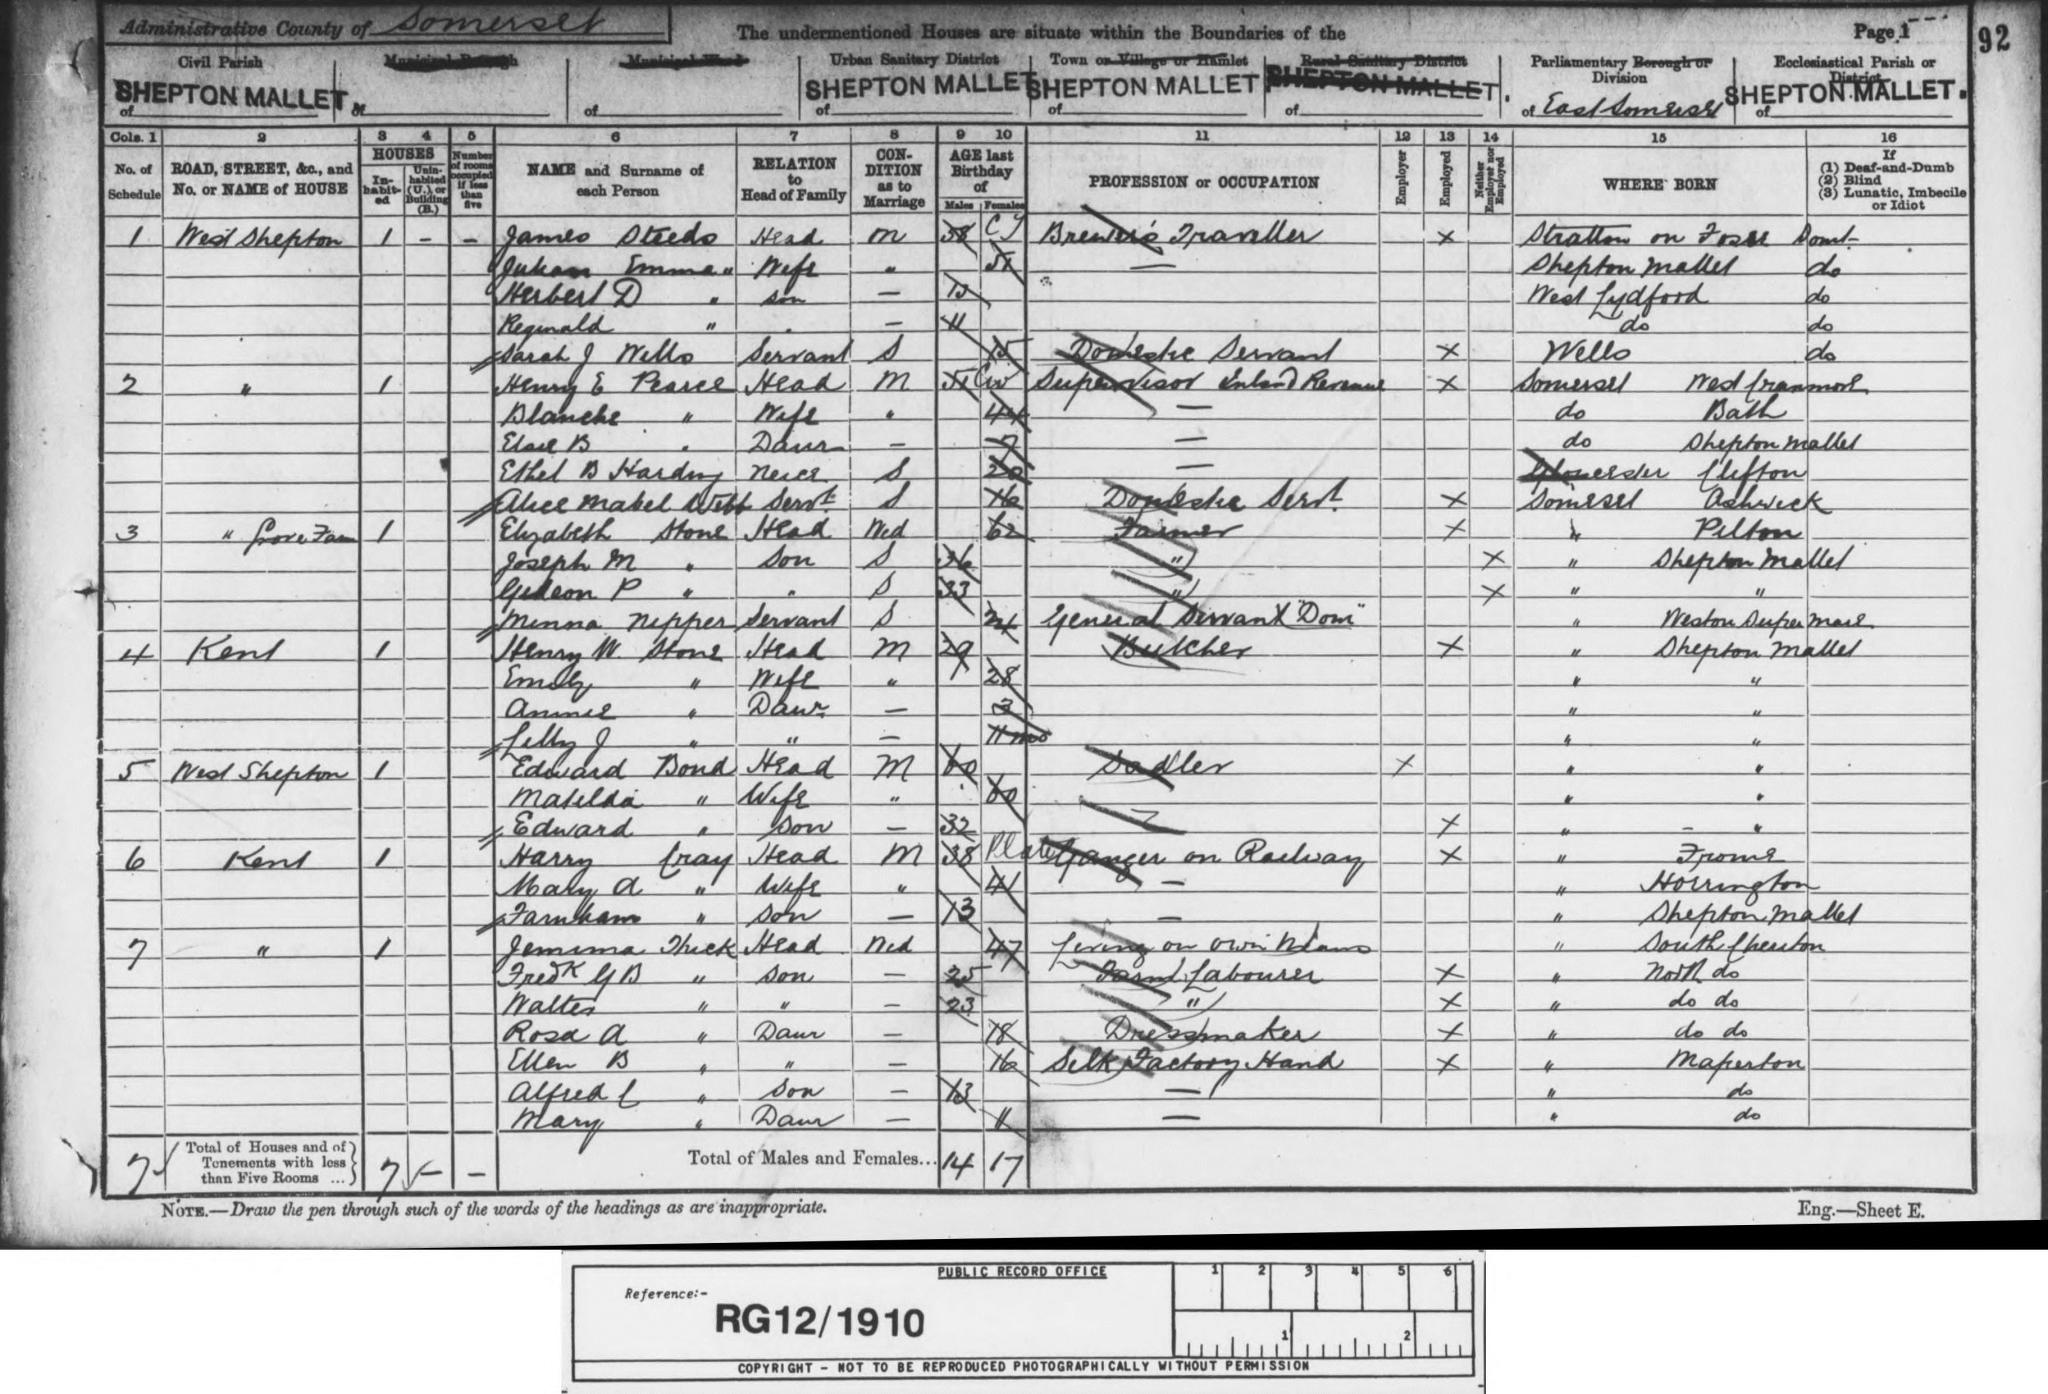 Administrative County of Somerset The undermentioned Houses are situate within the Boundaries of the Page 1 92
Civil Parish Municipal Borough Municipal Ward Urban Sanitary District Town or Village or Hamlet Rural Sanitary District Parliamentary Borough or Division Ecclesiastical Parish or District
of SHEPTON MALLET of of of SHEPTON MALLET of SHEPTON MALLET of SHEPTON MALLET. of East Somerset of SHEPTON MALLET.
Cols. 1 2 3 4 5 6 7 8 9 10 11 12 13 14 15 16
No. of Schedule ROAD, STREET, &c., and No. or NAME of HOUSE HOUSES In-habit-ed Unin-habited (U.), or Building (B.) Number of rooms occupied if less than five NAME and Surname of each Person RELATION to Head of Family CON-DITION as to Marriage AGE last Birthday of Males Females PROFESSION or OCCUPATION Employer Employed Neither Employer nor Employed WHERE BORN If (1) Deaf-and-Dumb (2) Blind (3) Lunatic, Imbecile or Idiot
1 West Shepton 1 - - James Steeds Head M 58 Brewer's Traveller x Stratton on Fosse Somt
Emma " Wife " 51 — Shepton Mallet do
Herbert D " Son — West Lydford do
Reginald " " — 11 do do
Sarah J Wells Servant S 15 Domestic Servant x Wells do
2 " 1 Henry E Pearce Head M 51 Supervisor Inland Revenue x Somerset West Cranmore
Blanche " Wife " 44 — do Bath
Elsie B " Daur — 7 — do Shepton Mallet
Ethel B Harding Neice S 20 — Gloucester Clifton
Alice Mabel Webb Servt. S 16 Domestic Servt. x Somerset Ashwick
3 " Grove Farm 1 Elizabeth Stone Head Wid 62 Farmer x " Pilton
Joseph M " Son S 36 " x " Shepton Mallet
Gideon P " " S 33 " x " "
Minna Nipper Servant S 24 General Servant "Dom" " Weston Super Mare
4 Kent 1 Henry W. Stone Head M 29 Butcher x " Shepton Mallet
Emily " Wife " 28 " "
Annie " Daur. — 3 " "
Lilly J " " — 11 mo " "
5 West Shepton 1 Edward Bond Head M 60 Sadler x " "
Matilda " Wife " 60 — " "
Edward " Son — 32 x " "
6 Kent 1 Harry Cray Head M 38 Plate Ganger on Railway x " Frome
Mary A " Wife " 41 — " Horrington
Farnham " Son — 13 — " Shepton Mallet
7 " 1 Jemima Thick Head Wid 47 Living on own Means " South Cheriton
Fredk G B " Son — 25 Farm Labourer x " North do
Walter " " — 23 " x " do do
Rosa A " Daur — 18 Dressmaker x " do do
Ellen B " " — 16 Silk Factory Hand x " Maperton
Alfred C " Son — 13 — " do
Mary " Daur — 11 — " do
7 Total of Houses and of Tenements with less than Five Rooms ... 7 - - Total of Males and Females... 14 17
NOTE.—Draw the pen through such of the words of the headings as are inappropriate. Eng.—Sheet E.
PUBLIC RECORD OFFICE 1 2 3 4 5 6
Reference:-
RG12/1910
1 2
COPYRIGHT - NOT TO BE REPRODUCED PHOTOGRAPHICALLY WITHOUT PERMISSION